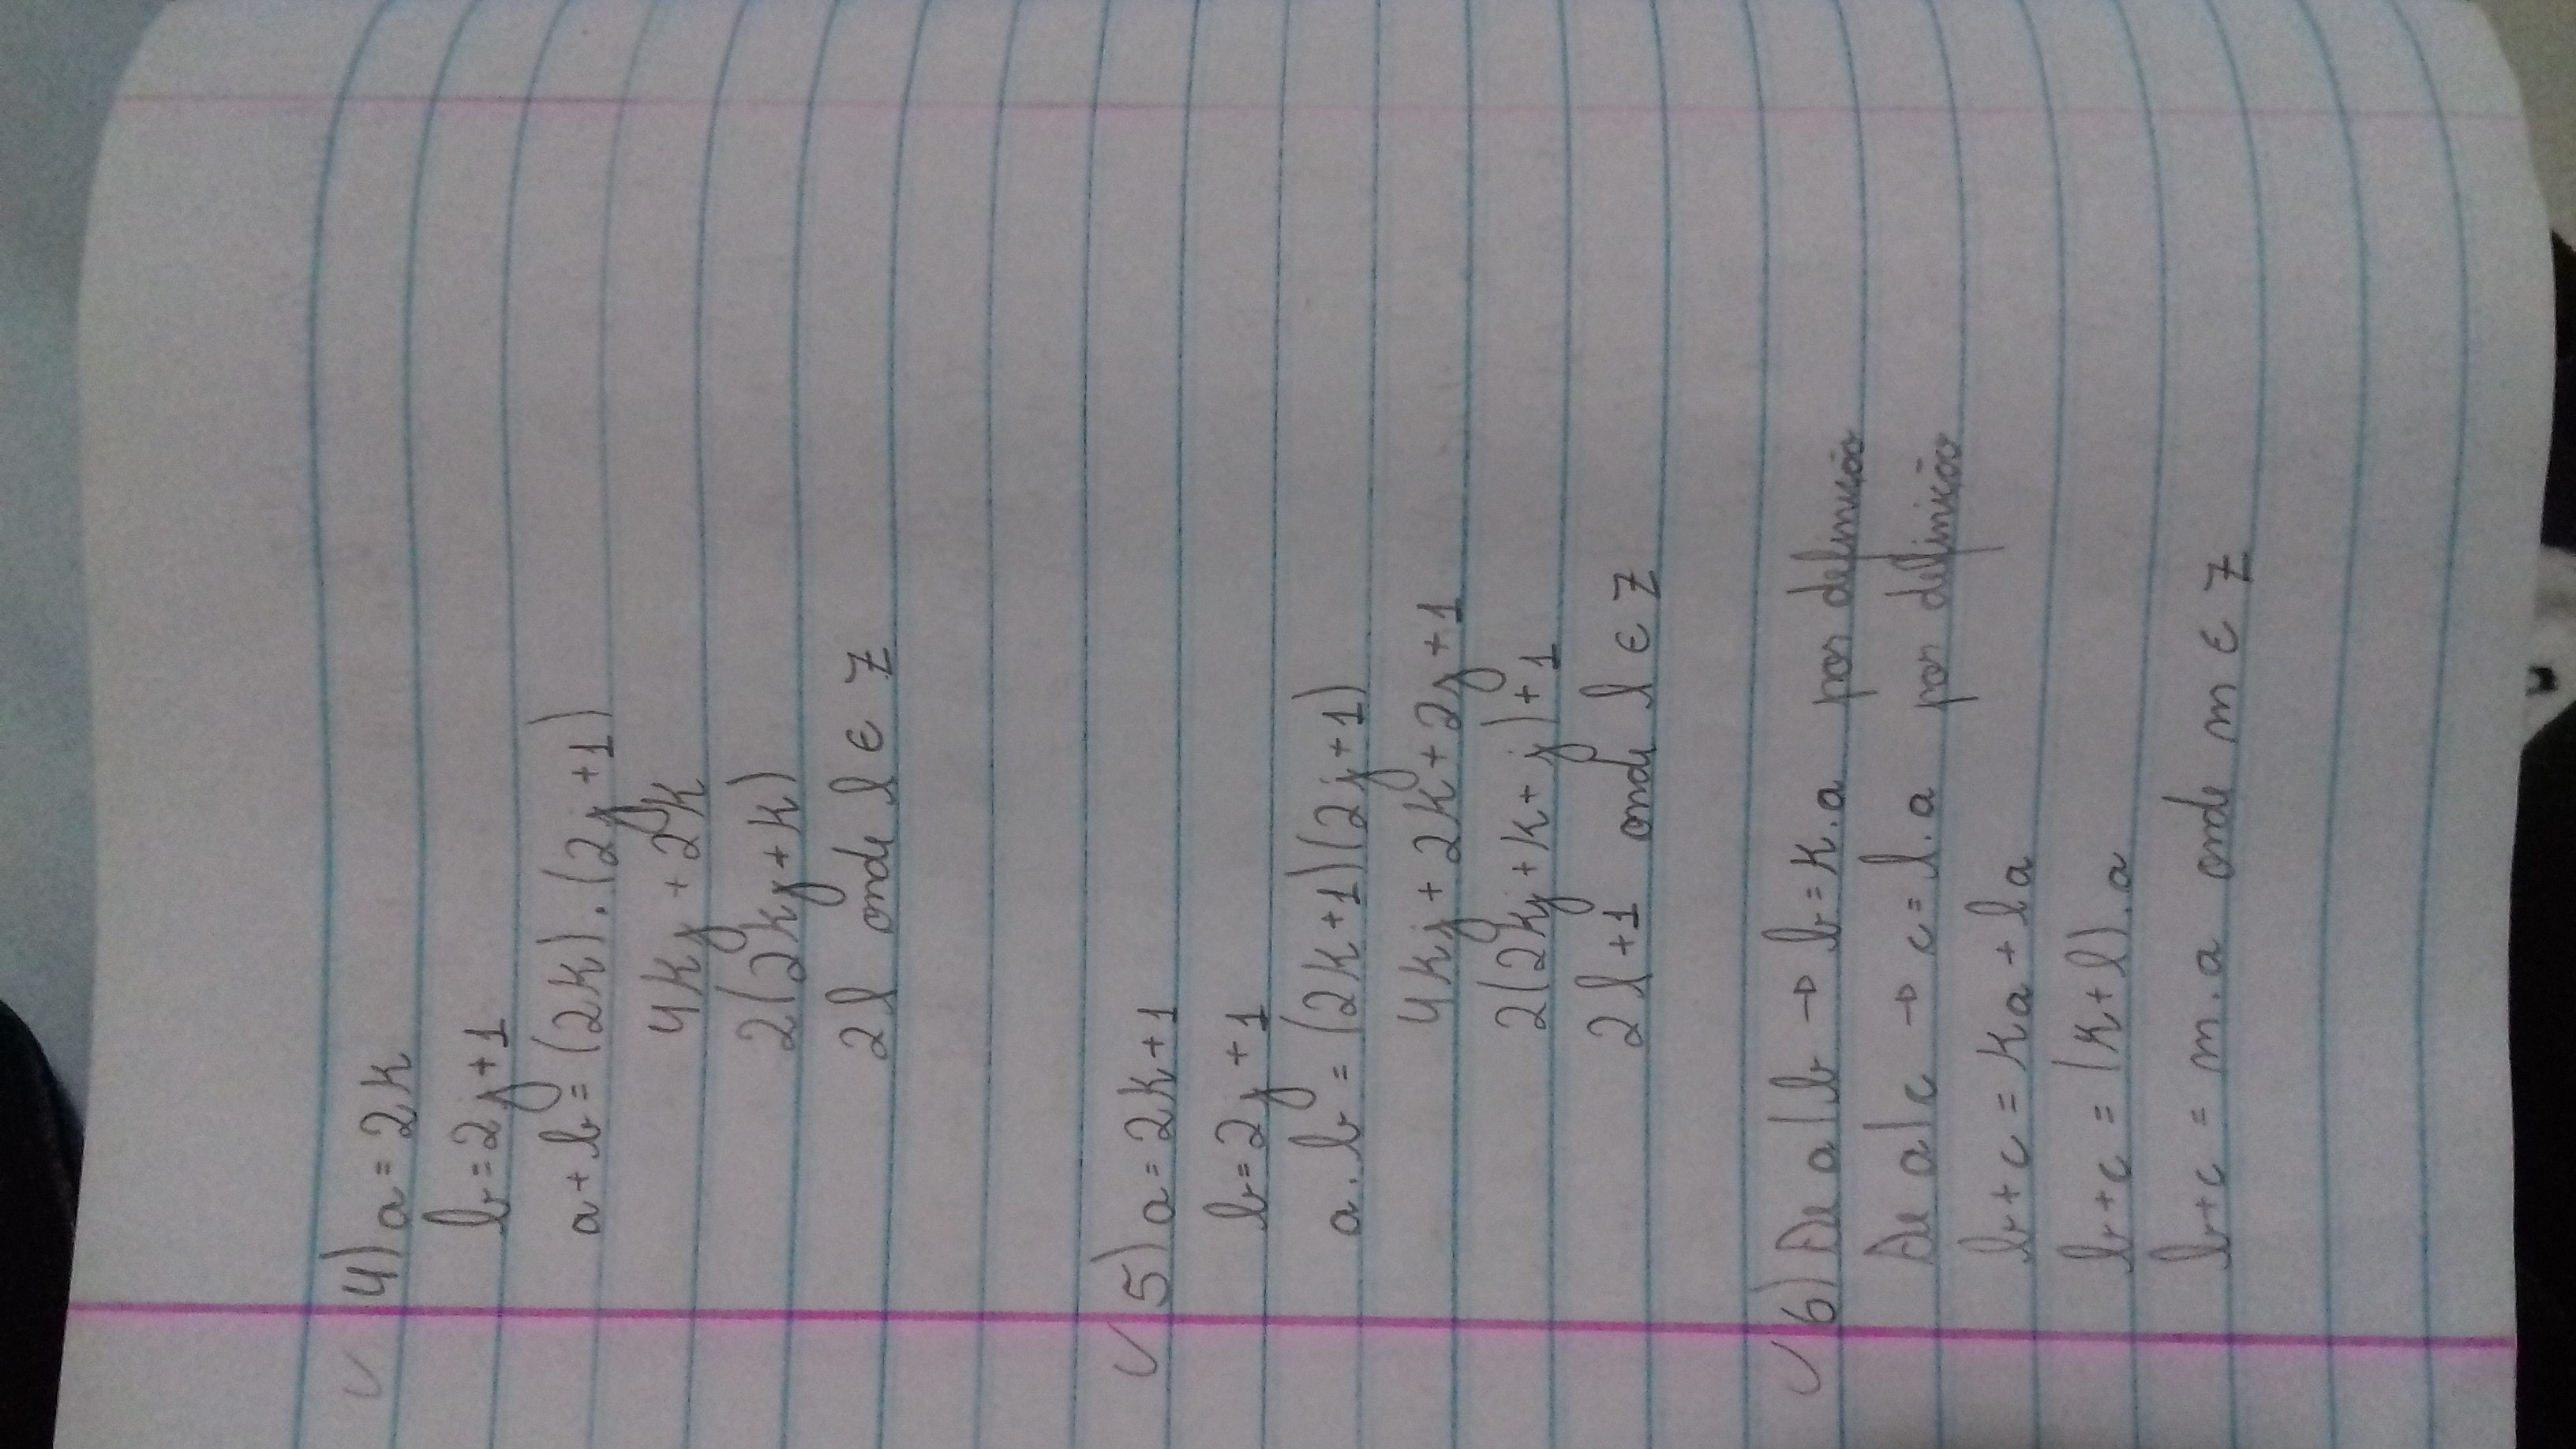 4) a = 2k
b = 2j + 1
a + b = (2k) . (2j + 1)
4kj + 2k
2(2kj + k)
2l onde l ∈ Z
5) a = 2k + 1
b = 2j + 1
a . b = (2k + 1)(2j + 1)
4kj + 2k + 2j + 1
2(2kj + k + j) + 1
2l + 1 onde l ∈ Z
6) De a|b → b = k . a por definição
De a|c → c = l . a por definição
b + c = ka + la
b + c = (k + l) . a
b + c = m . a onde m ∈ Z